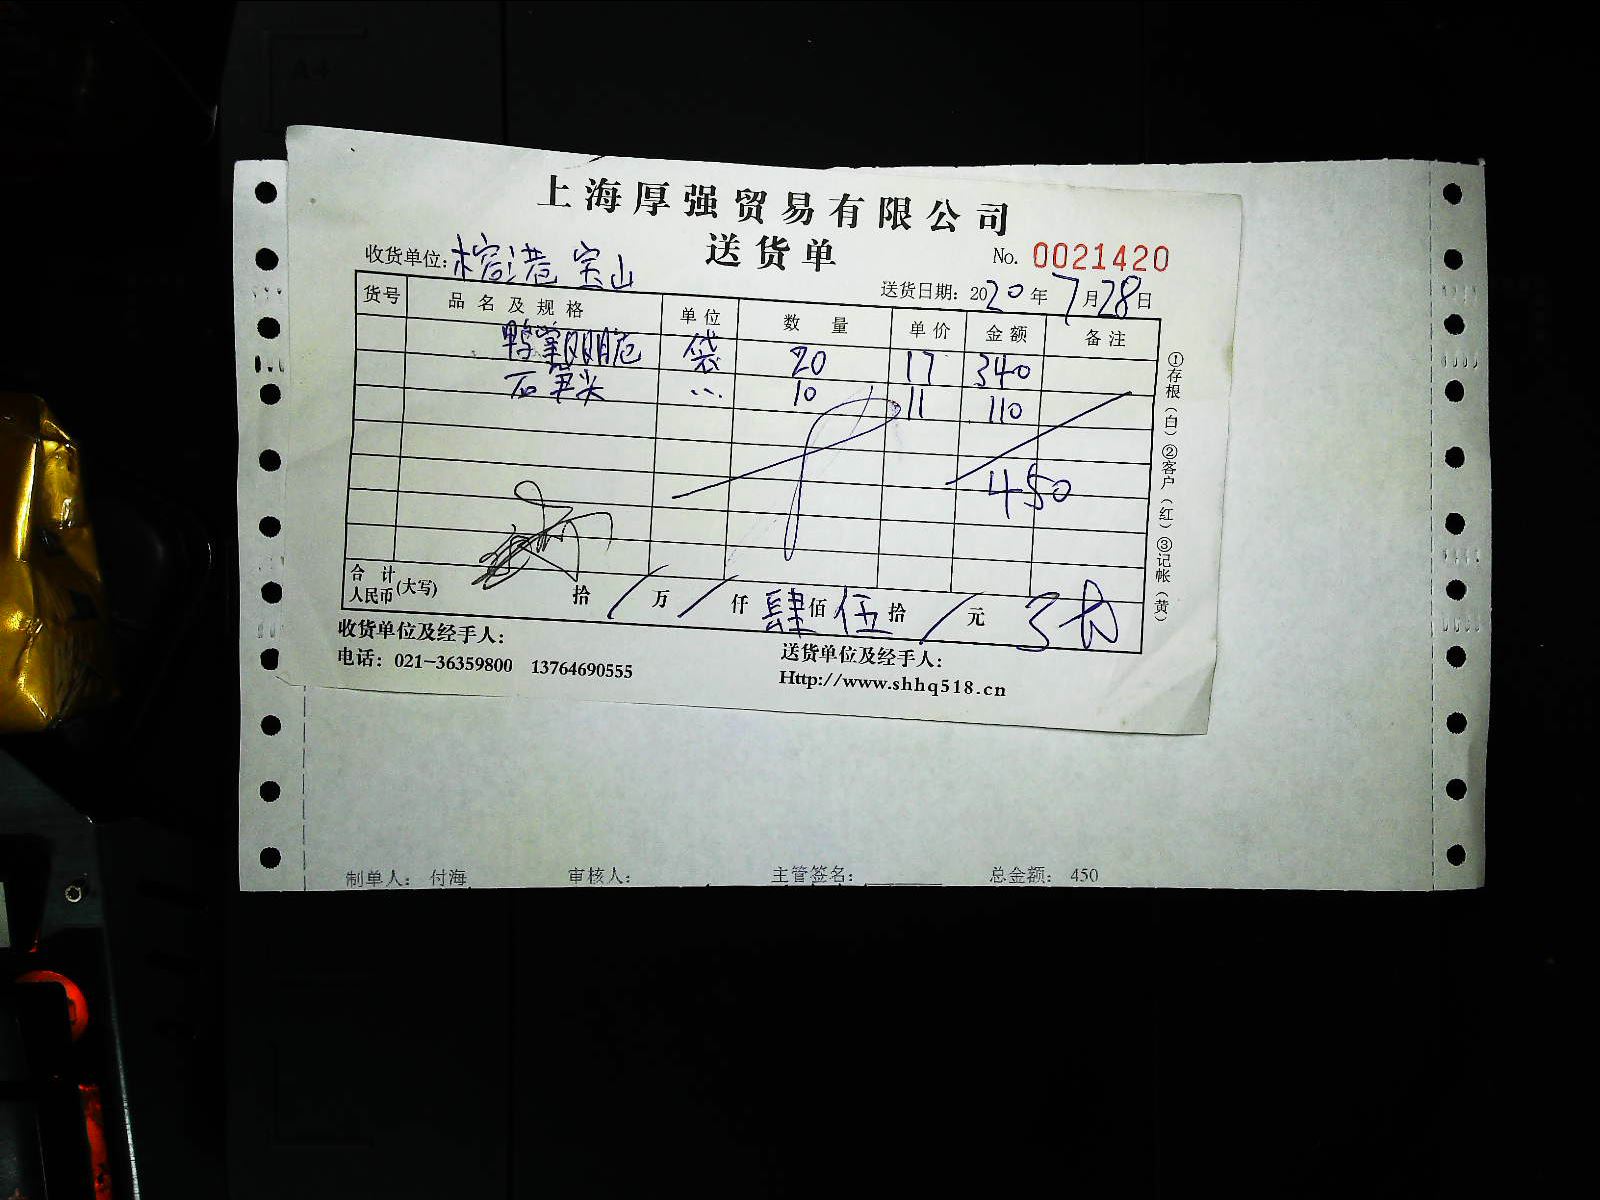 上海厚强贸易有限公司
送货单
No. 0021420
收货单位: 港 宝山
送货日期: 2020年7月28日
货号 品名及规格 单位 数量 单价 金额 备注
鸭掌 脆 袋 20 17 340
石笋尖 〃 10 11 110
450
合计人民币(大写) 拾 / 万 / 仟 肆 佰 伍 拾 / 元
①存根(白)②客户(红)③记帐(黄)
收货单位及经手人:
送货单位及经手人:
电话: 021-36359800 13764690555
Http://www.shhq518.cn
制单人: 付海 审核人: 主管签名: 总金额: 450